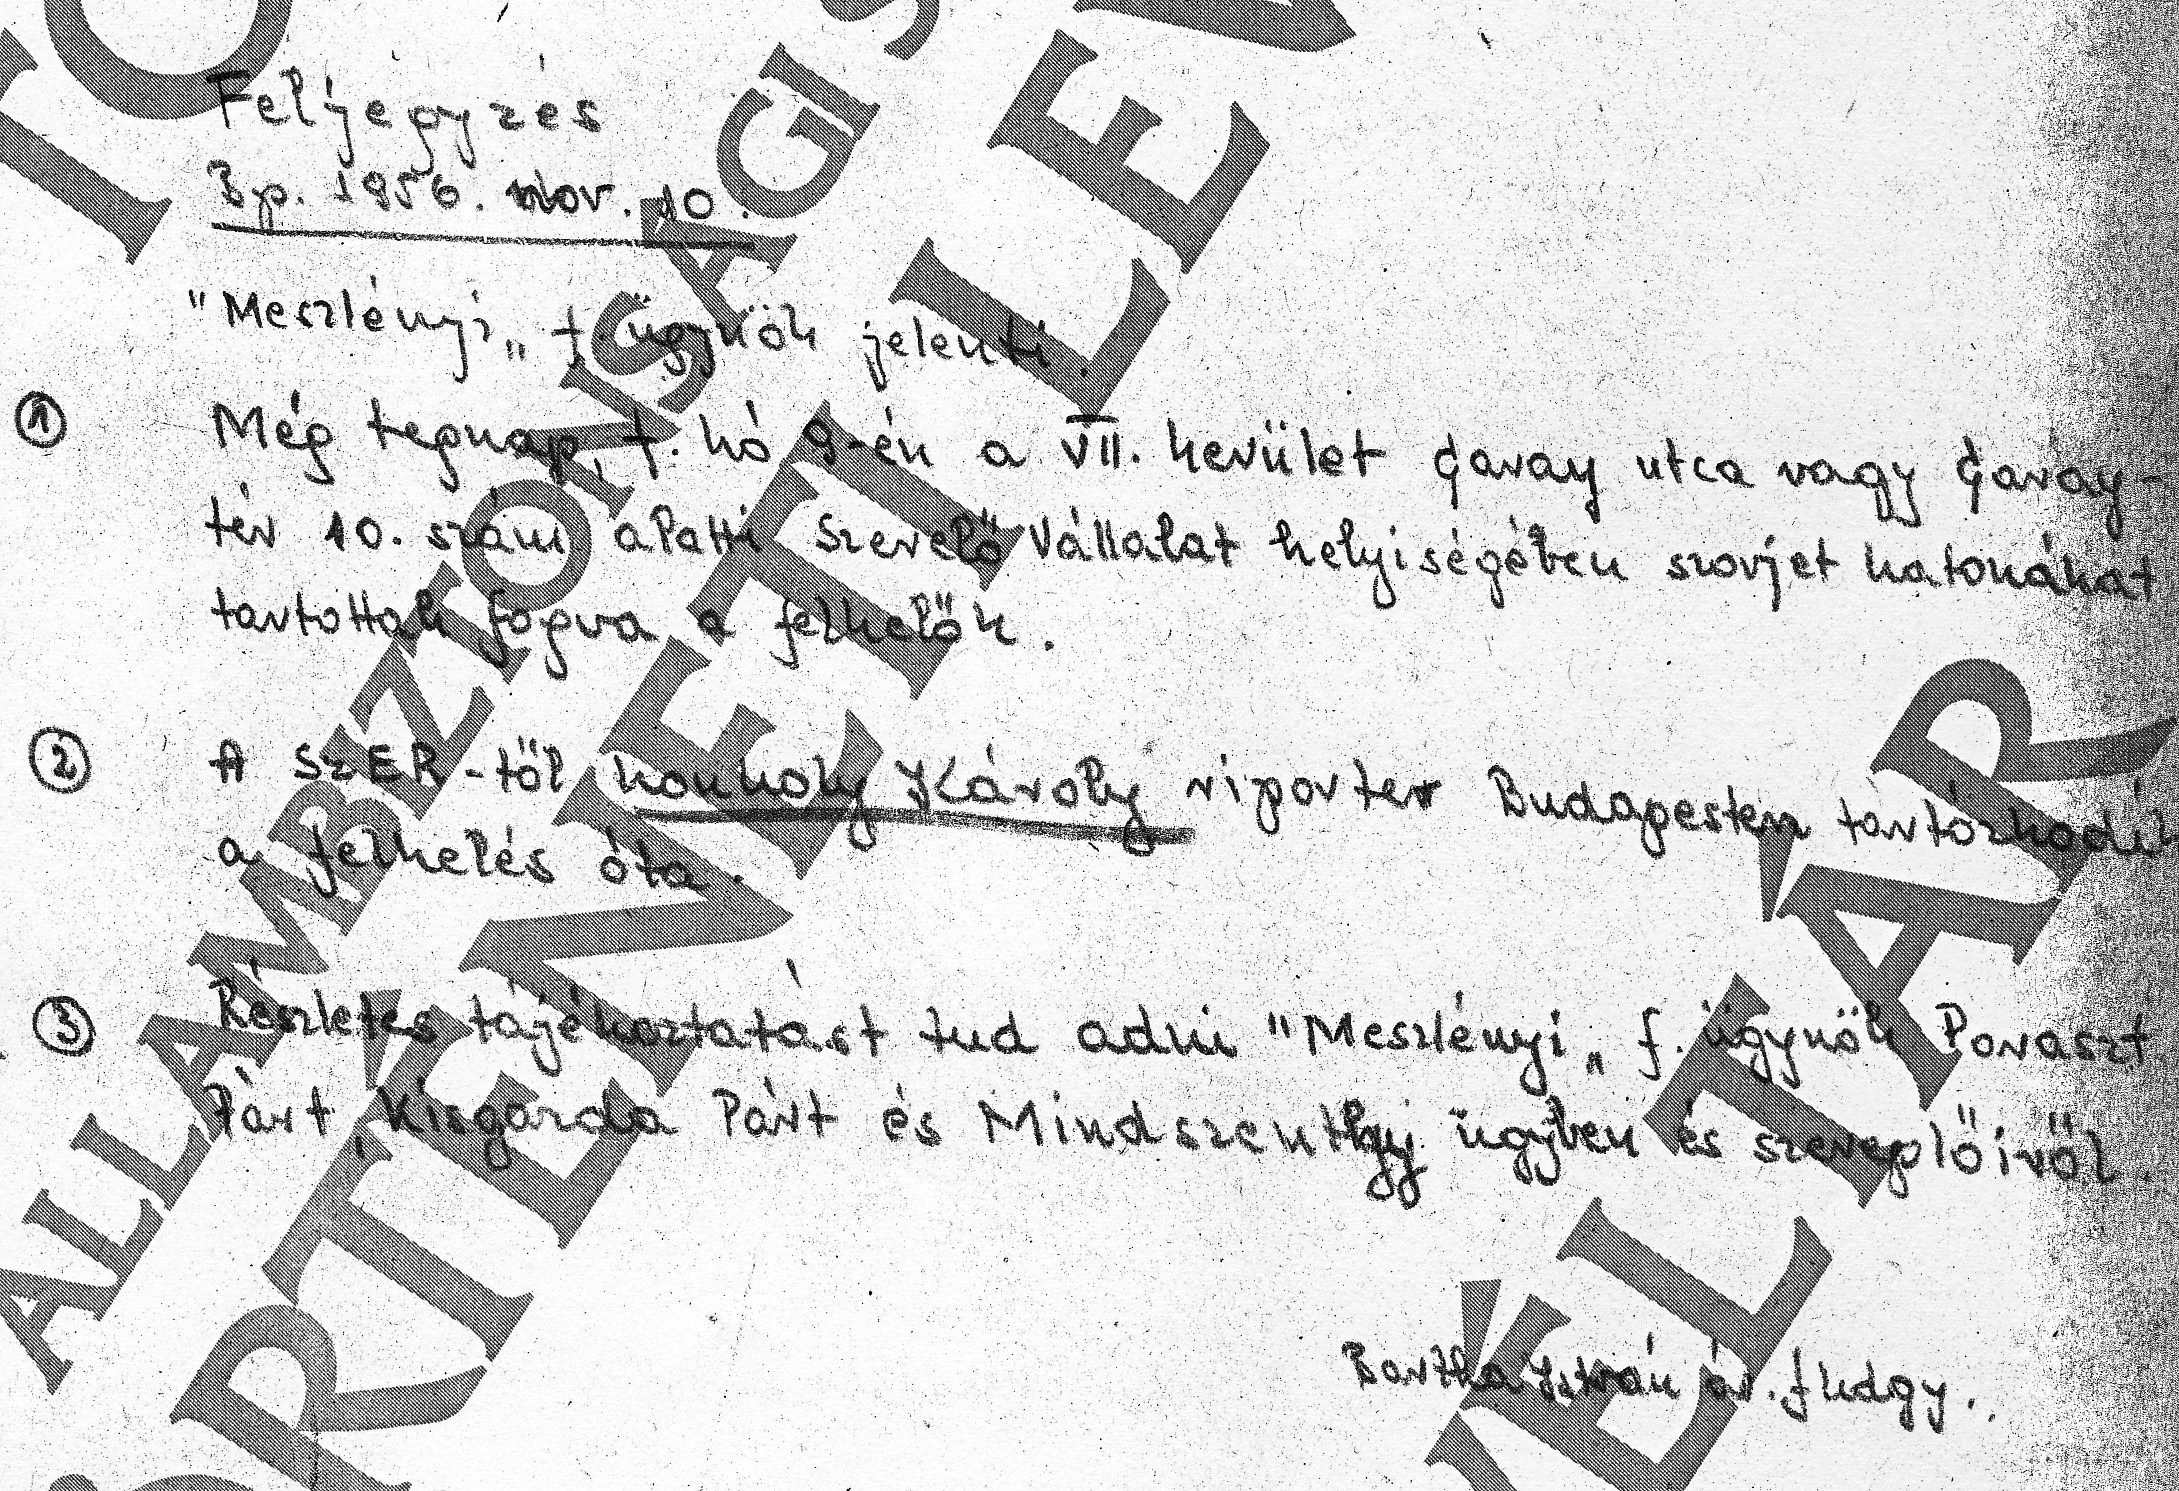 Feljegyzés
Bp. 1956. nov. 10.
"Meszlényi„ f. ügynök jelenti.
① Még tegnap, f. hó 9-én a VII. kerület Garay utca vagy Garay-
tér 10. szám alatti Szerelő Vállalat helyiségében szovjet katonákat
tartottak fogva a felkelők.
② A SZER-től Konkoly Károly riporter Budapesten tartózkodik
a felkelés óta.
③ Részletes tájékoztatást tud adni "Meszlényi„ f. ügynök Paraszt
Párt, Kisgazda Párt és Mindszenthy ügyben és szereplőiről.
Bartha István ár. fhdgy.
ÁLLAMBIZTONSÁGI S
TÖRTÉNETI LEV
VÉLTÁR